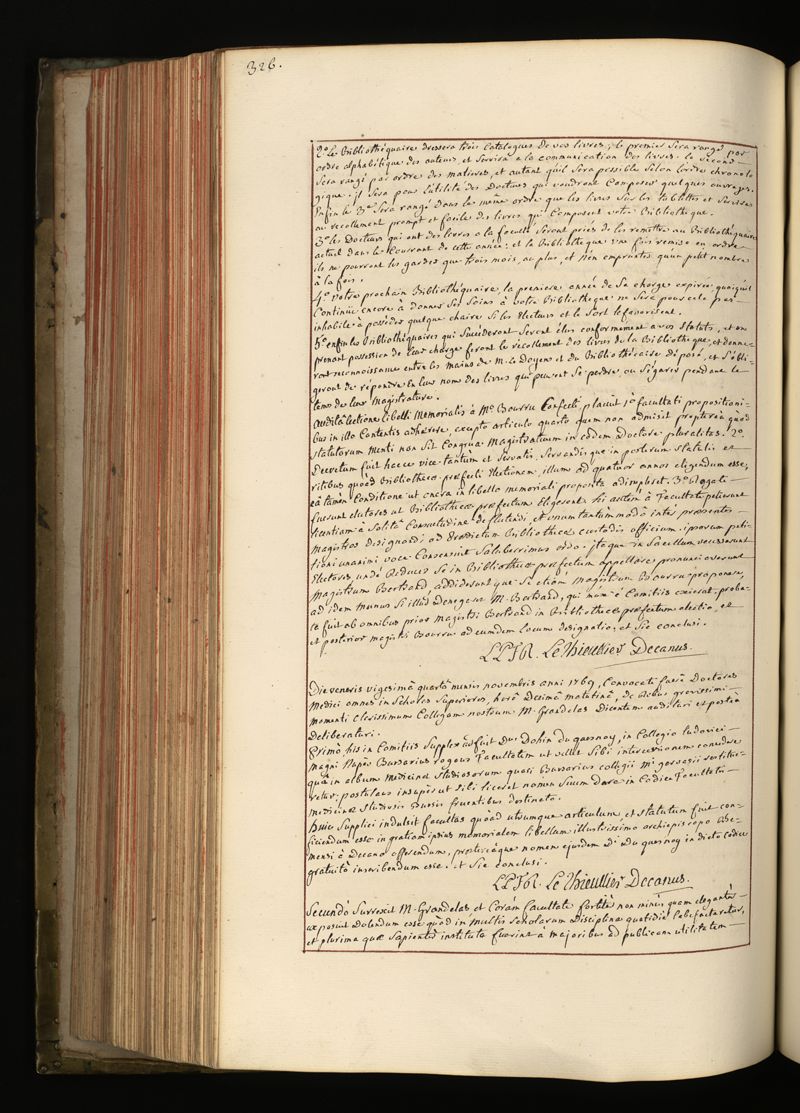 326.
2o. Le Bibliothéquaire dressera trois Catalogues de vos livres; le premier sera rangé par
ordre alphabétique des auteurs, et servira a la communication des livres. le second
sera rangé par ordre des matieres, et autant qu'il sera possible selon l'ordre chronolo
gique. il sera pour l'utilité des Docteurs qui voudront Composer quelques ouvrages.
Enfin le 3e. sera rangé dans le même ordre que les livres sur les tablettes et servira
au recollement prompt et facile des livres qui Composent votre Bibliothéque.
3o. les Docteurs qui ont des livres a la faculté seront priés de les remettre au Bibliothéquaire
actuel dans le Courrant de cette année; et la Bibliothéque une fois remise en ordre
ils ne pourront les garder que trois mois, au plus, et n'en emprunter qu'un petit nombre
à la fois.
4o. Votre prochain Bibliothéquaire, la premiere année de sa charge expirée, quoiqu'il
Continüe encore à donner ses soins à votre Bibliothéque ne sera pour cela pas
inhabile à posséder quelque chaire si les Electeurs et le sort le favorisent.
5o. enfin les Bibliothéquaires qui succéderont seront élus conformement a vos statuts, et en
prenant possession de leur charge feront le récollement des livres de la Bibliothéque, et donne-
ront reconnoissance entre les mains de M. le Doyen et du Bibliothécaire déposé, et s'obli-
geront de répondre En leur nom des livres qui peuvent se perdre ou s'égarer pendant le
tems de leur Magistrature.
Auditâ lectione libelli Memorialis à Mo. Bourru Confecti placuit 1o. facultati propositioni-
bus in illo Contentis adhærere, excepto articulo quarto quem non admisit propterea quòd
statutorum menti non sit Congrua Magistratuum in eodem Doctore pluralitas. 2o.
Decretum fuit hacce vice tantùm et servatis, servandisque in posterum statutis et
ritibus quoàd Bibliothecæ præfecti Electionem, illum ad quatuor annos eligendum esse,
eâ tamen Conditione ut onera in libello memoriali proposita adimpleret. 3o. Rogati
fuerunt electores ut Bibliothecæ præfectum Eligerent. hi autem à Facultate petierunt
licentiam à solitâ Consuetudine deflectendi, et unum tantummodo inter præsentes
Magistros designandi ad prædictum Bibliothecæ custodis officium. ipsorum peti-
tioni unanimi voce Consensit saluberrimus ordo. itaque in sacellum recesserunt
Electores, undè Reduces se in Bibliothecæ præfectum appellare pronunciaverunt
Magistrum Bertrand, addideruntque se etiam Magistrum Bourru proponere,
ad idem munus si illud denegaret M. Bertrand, qui tum è Comitiis exierat. proba-
ta fuit ab omnibus prior Magistri Bertrand in Bibliothecæ præfectum electio, et
et posterior magistri Bourru ad eumdem locum designatio, et sic conclusi.
Le Thieullier Decanus.
Die veneris vigesimâ quartâ mensis novembris anni 1769, Convocati fuere Doctores
Medici omnes in Scholas Superiores, horâ Decimâ matutinâ, de Rebus gravissimi
momenti Clarissimum Collegam nostrum M. Grandelas Dicentem audituri et postea
Deliberaturi.
Primò his in Comitiis supplex adfuit Dus. Dohin du quesnoy, in Collegio Ludovici
Magni nuper Bursarius rogans Facultatem ut vellet sibi intercessionem concedere
quâ in album Medicinæ studiosorum quasi Bursarius collegii Mi. gervasii restitue-
retur; postulans insuper ut sibi liceret nomen suum dare in Codice Facultatis
medicinæ studiosis Bursis fruentibus destinato.
huic supplici indulsit facultas quoad utrumque articulum, et statutum fuit con-
ficiendum esse in gratiam ipsius memorialem libellum illustrissimo archiepiscopo abs-
menti à Decano offerendum, proptereàque nomen ejusdem Di. du quesnoy in dicto codice
gratuito inscribendum esse. et sic conclusi.
Le Thieullier Decanus.
Secundò Surrexit M. Grandelas et Coram Facultate fortiter non minùs quam eleganter
exposuit dolendum esse quòd in multis scholarum disciplina quotidiè labefactaretur,
et plurima quæ sapienter instituta fuerint à majoribus ad publicam utilitatem